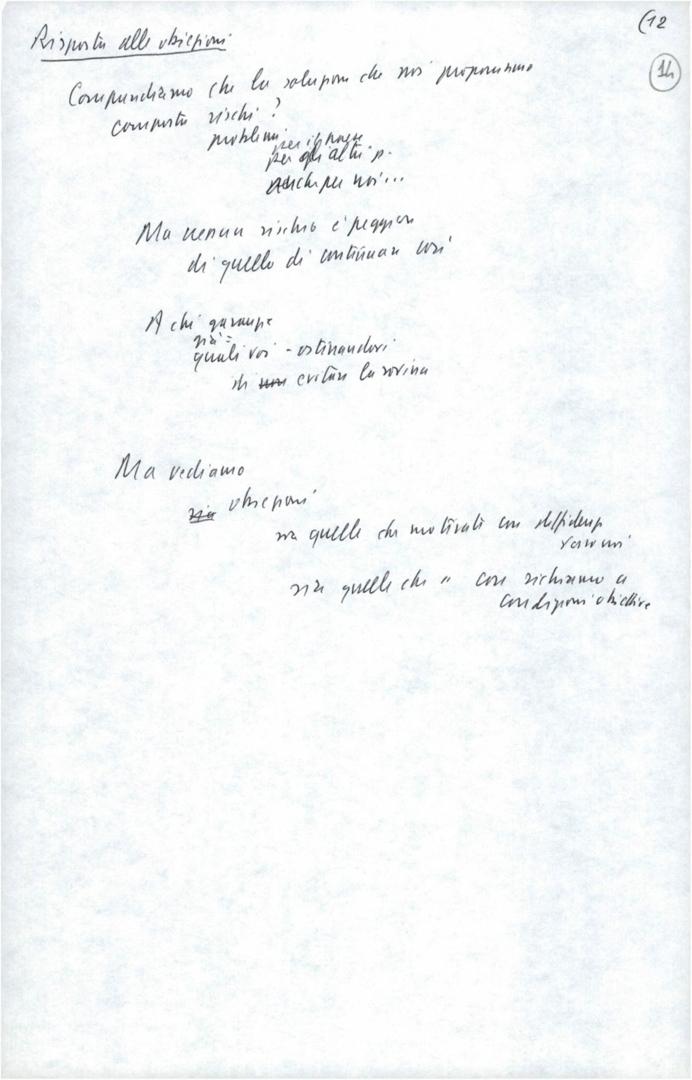 (12
14
Risposta alle obiezioni
Comprendiamo che la soluzione che noi proponiamo
comporta rischi?
problemi
per il paese
per gli altri p.
anche per noi...
Ma nessun rischio è peggiore
di quello di continuare così
A chi
quali voi - ostinandovi
di evitare la rovina
Ma vediamo
obiezioni
sia quelle che motivate con diffidenze
verso noi
sia quelle che " con richiamo a
condizioni obiettive